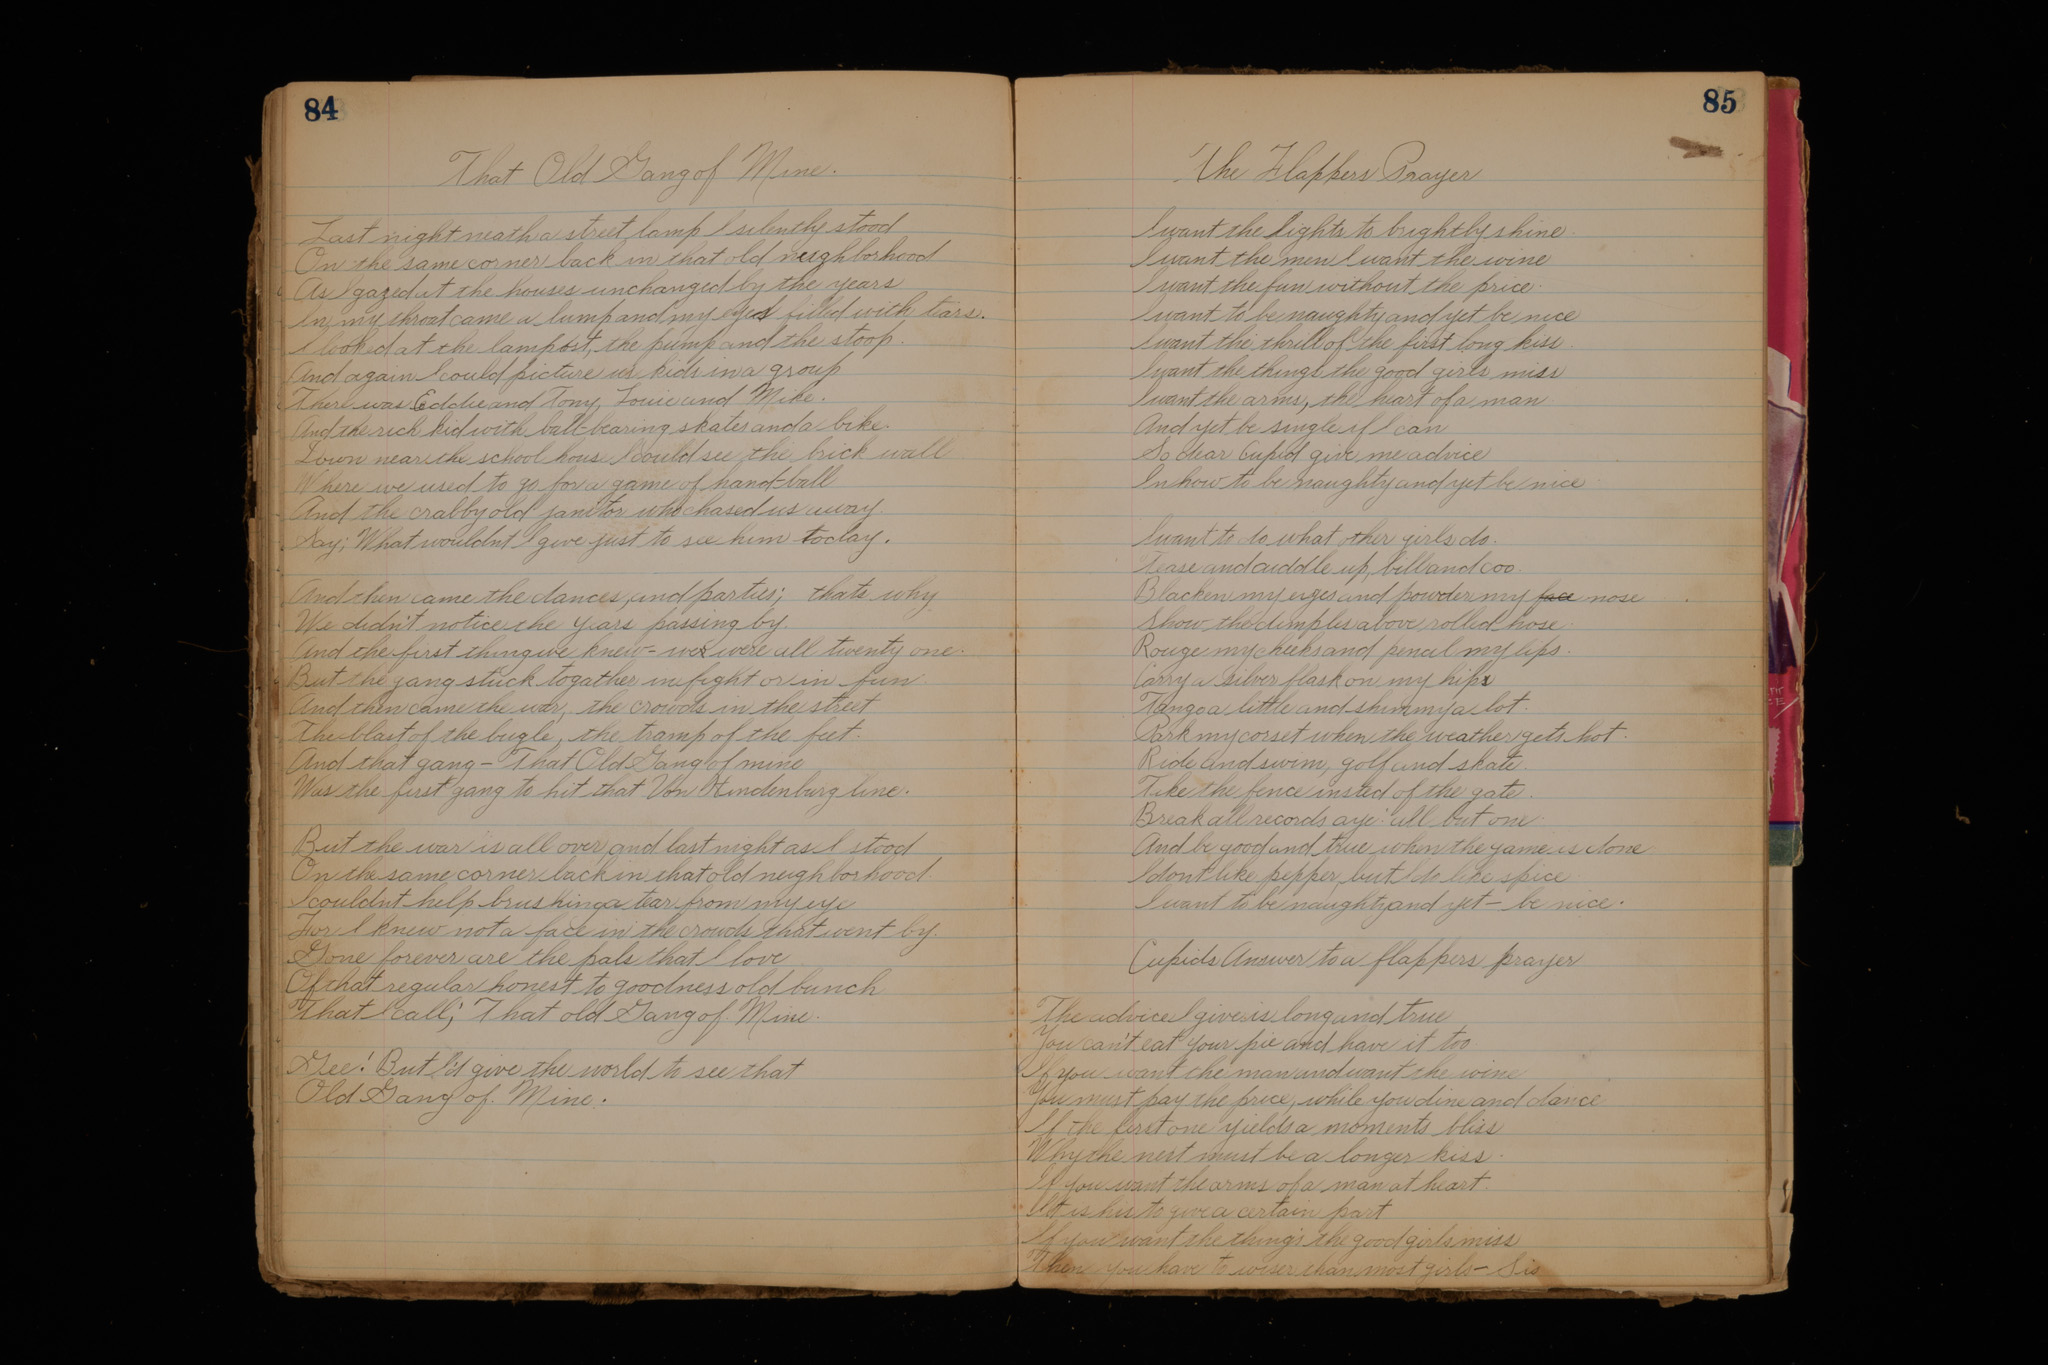 84
That Old Gang of Mine.
Last night neath a street lamp I silently stood
On the same corner back in that old neighborhood
As I gazed at the houses unchanged by the years
In my throat came a lump and my eyes filled with tears.
I looked at the lampost, the pump and the stoop.
And again I could picture us kids in a group
There was Eddie and Tony, Louie and Mike.
And the rich kid with ball-bearing skates and a bike.
Down near the school hous I could see the brick wall
Where we used to go for a game of hand-ball
And the crabby old janitor who chased us away
Say; What wouldnt I give just to see him today.
And then came the dances, and parties; thats why
We didn't notice the years passing by.
And the first thing we knew- we were all twenty one.
But the gang stuck together in fight or in fun
And then came the war, the crowds in the street
The blast of the bugle, the tramp of the feet.
And that gang - That Old Gang of mine
Was the first gang to hit that Von Hindenburg line.
But the war is all over, and last night as I stood
On the same corner back in that old neighborhood
I couldnt help brushing a tear from my eye
For I knew not a face in the crowds that went by.
Gone forever are the pals that I love
Of that regular honest to goodness old bunch
That I call; That old Gang of Mine.
Gee! But I'd give the world to see that
Old Gang of Mine.
85
The Flappers Prayer
I want the lights to brightly shine.
I want the men I want the wine
I want the fun without the price.
I want to be naughty and yet be nice
I want the thrill of the first long kiss.
I want the things the good girls miss
I want the arms, the heart of a man
And yet be single if I can
So dear Cupid give me advice
In how to be naughty and yet be nice.
I want to do what other girls do.
Tease and cuddle up, bill and coo.
Blacken my eyes and powder my face nose
Show the dimples above rolled hose.
Rouge my cheeks and pencil my lips.
Carry a silver flask on my hips
Tango a little and shimmy a lot.
Park my corset when the weather gets hot.
Ride and swim, golf and skate.
Take the fence insted of the gate.
Break all records aye. all but one.
And be good and true when the game is done
I dont like pepper, but I do like spice
I want to be naughty and yet - be nice.
Cupids Answer to a flappers prayer
The advice I give is long and true
You can't eat your pie and have it too
If you want the man and want the wine
You must pay the price, while you dine and dance
If the first one yields a moments bliss
Why the next must be a longer kiss.
If you want the arms of a man at heart.
It is his to give a certain part
If you want the things the good girls miss
Then you have to wiser than most girls - Sis